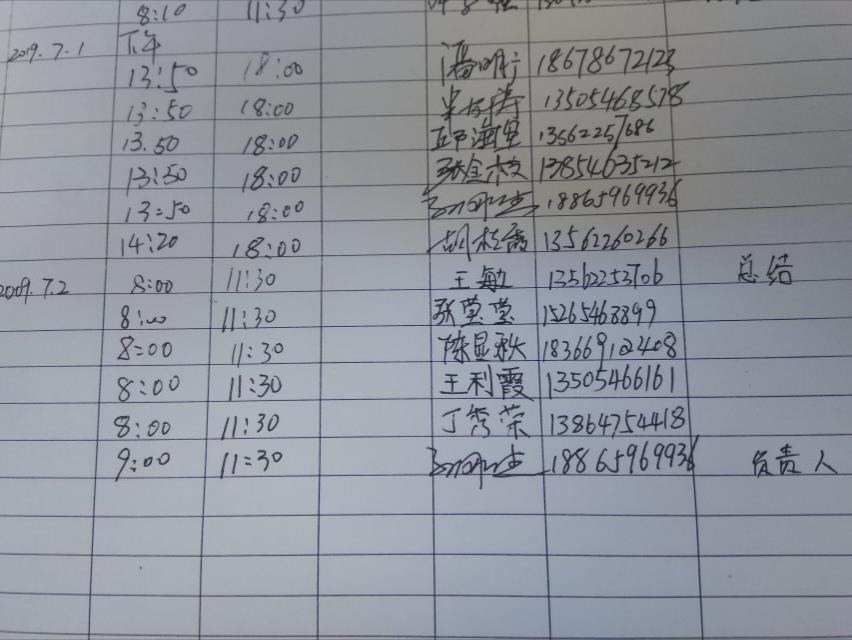 8:10 11:30
2019.7.1 下午
13:50 18:00 潘明 18678672123
13:50 18:00 13505468578
13.50 18:00 13562257686
13:50 18:00 张金 13854635212
13:50 18:00 18865969936
14:20 18:00 胡桂香 13562260266
2009.7.2 8:00 11:30 王敏 13562253706 总结
8:00 11:30 张莹莹 15265468899
8:00 11:30 陈显秋 18366912408
8:00 11:30 王利霞 13505466161
8:00 11:30 丁秀荣 13864754418
9:00 11:30 18865969936 负责人